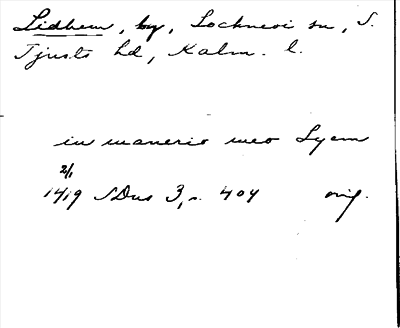 Lidhem, by, Locknevi sn, S.
Tjusts hd, Kalm. l.
in manerio meo Lyem
2/1
1419 SDns 3, s. 404 orig.